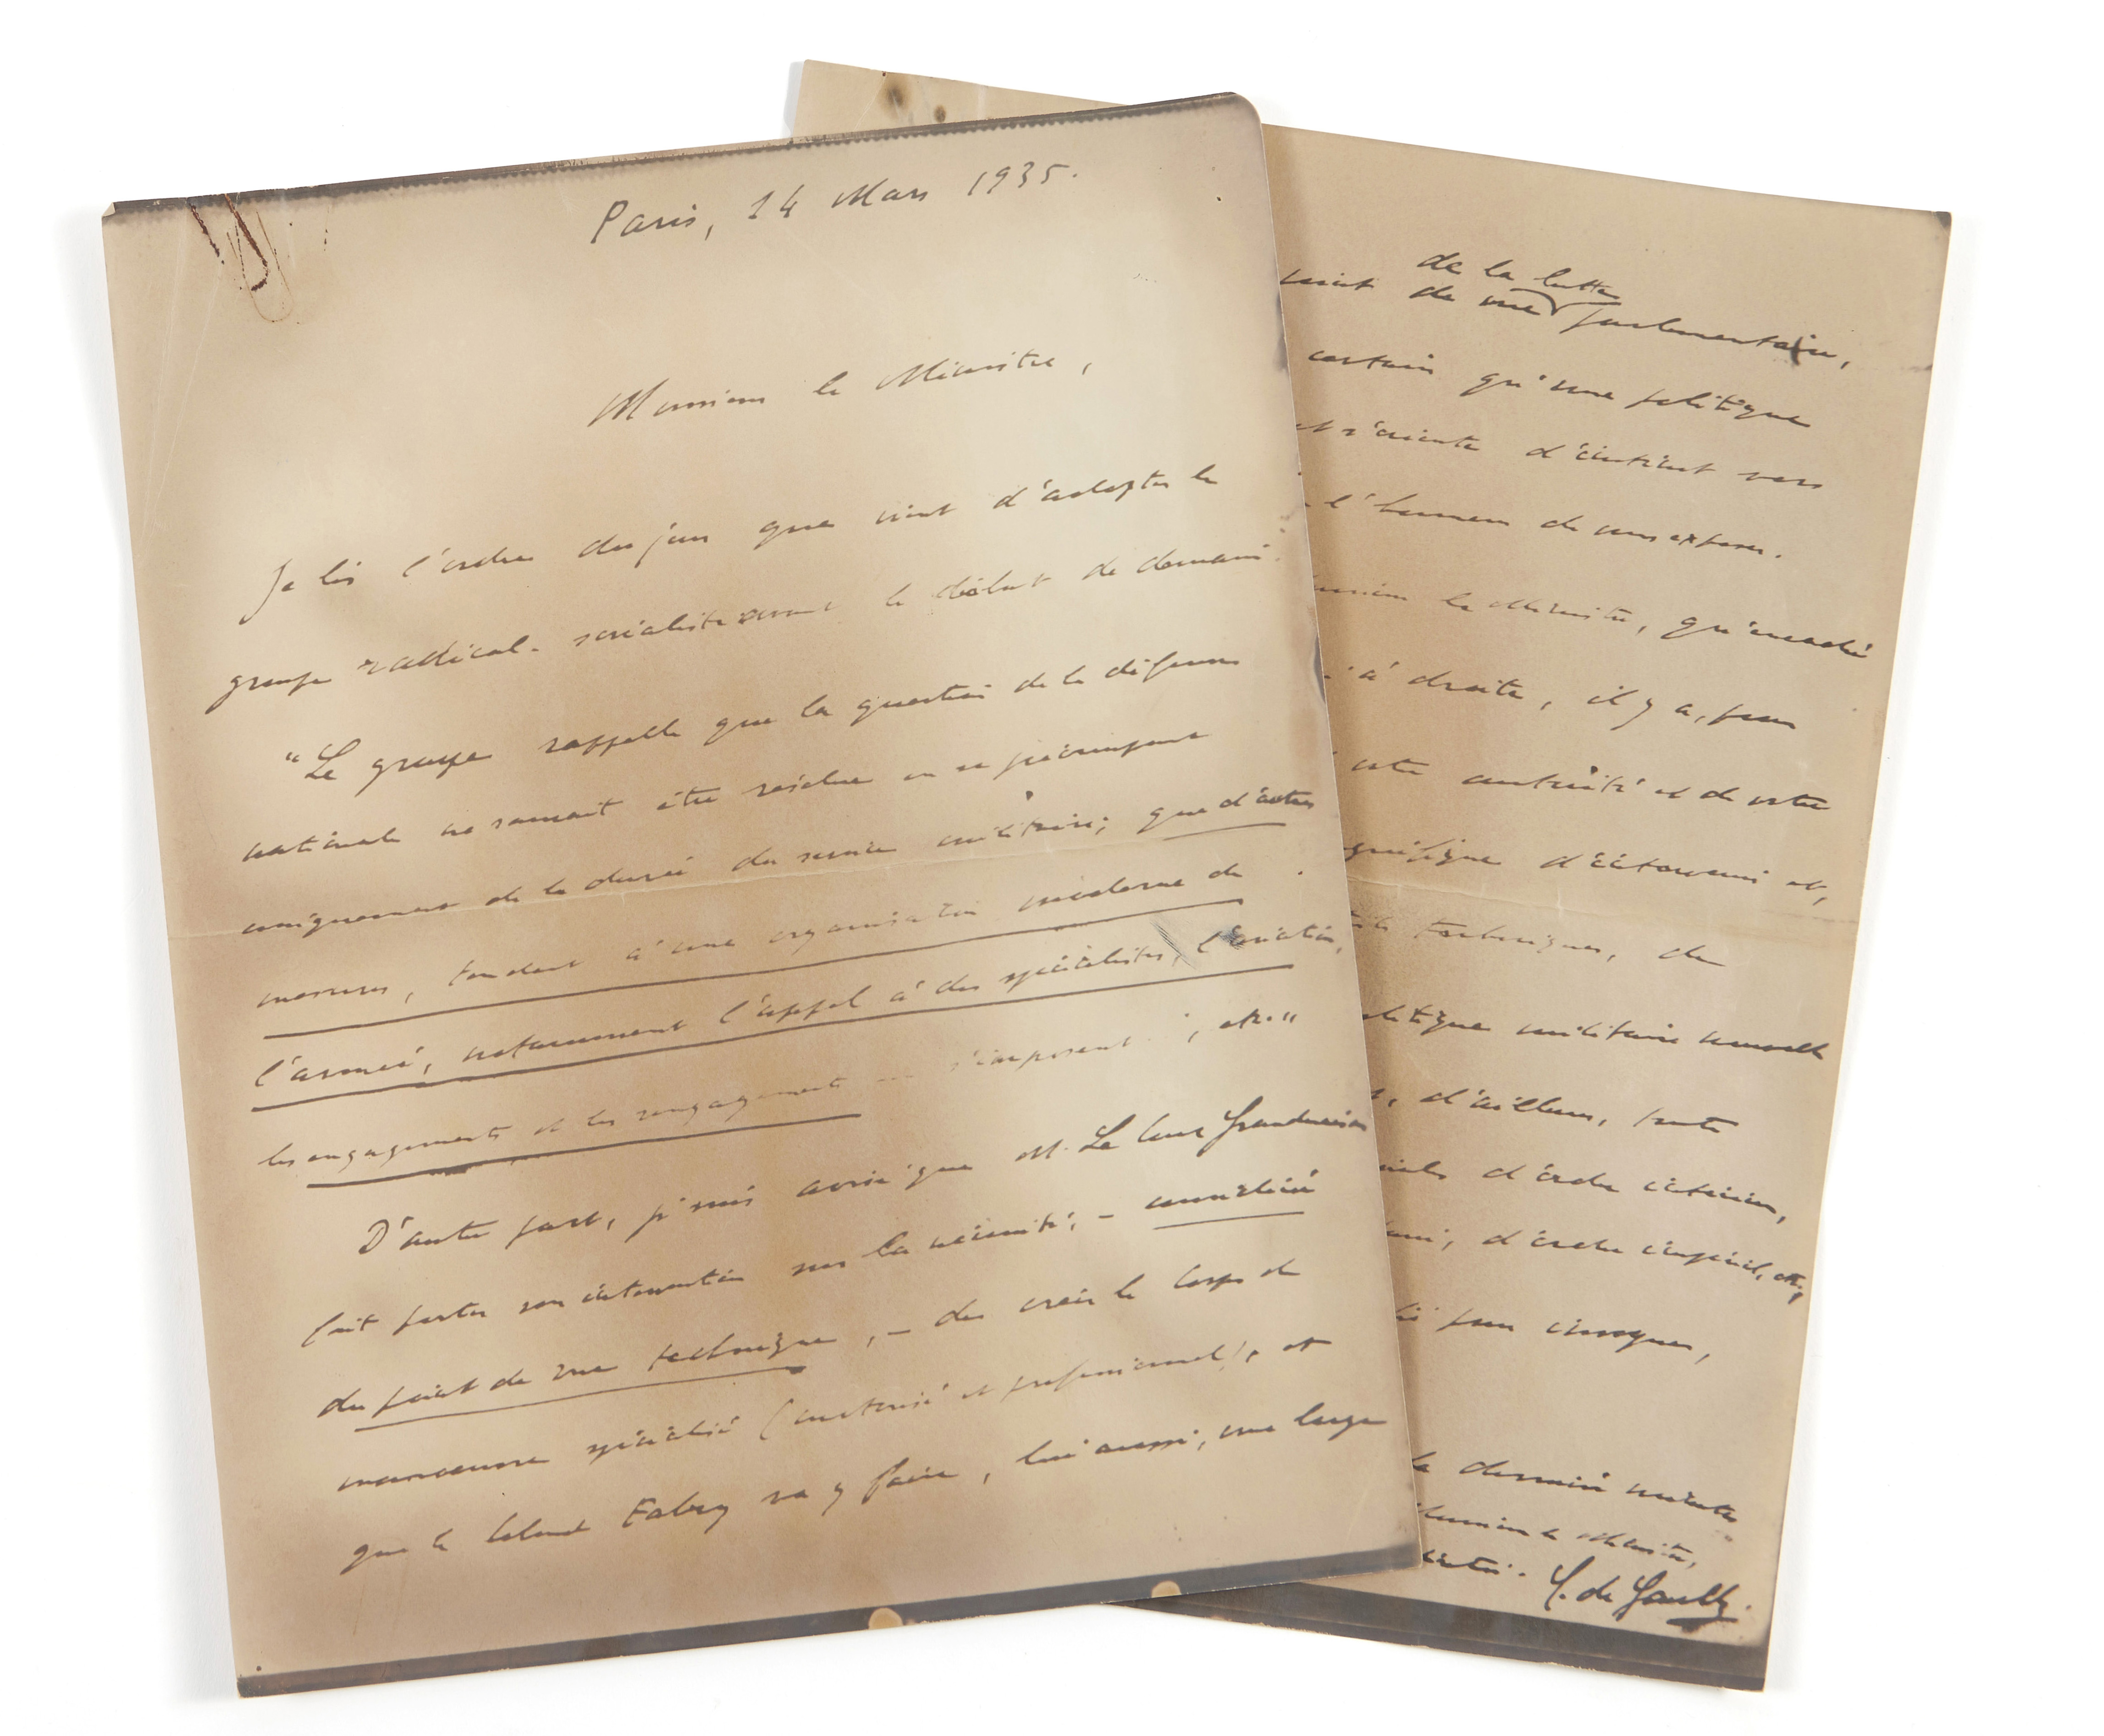 Paris, 14 Mars 1935.
Monsieur le Ministre,
Je lis l'ordre du jour que vient d'adopter le
groupe radical-socialiste avant le débat de demain:
"Le groupe rappelle que la question de la défense
nationale ne saurait être résolue en se préoccupant
uniquement de la durée du service militaire; que d'autres
mesures, tendant à une organisation moderne de
l'armée, notamment l'appel à des spécialistes, l'aviation,
les engagements et les rengagements s'imposent, etc."
D'autre part, je suis avisé que M. Le Cour Grandmaison
fait porter son intervention sur la nécessité, -
du point de vue technique, - de créer le Corps de
manoeuvre spécialisé (motorisé et professionnel), et
que le Colonel Fabry va y faire, lui aussi, une large
de la lutte
point de vue parlementaire,
certain qu'une politique
et s'oriente d'instinct vers
l'honneur de vous exposer.
Monsieur le Ministre, qu'
à droite, il y a, pour
votre autorité et de votre
d' et,
techniques, de
politique militaire nouvelle
d'ailleurs, toute
d'ordre intérieur,
d'ordre impérial, etc;
pour invoquer,
la dernière minute
Monsieur le Ministre,
C. de Gaulle.